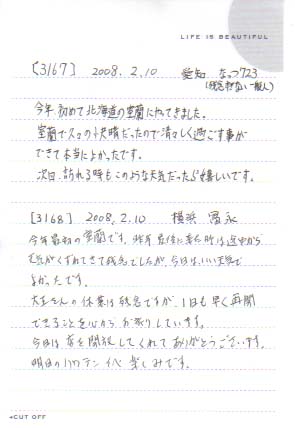 LIFE IS BEAUTIFUL
[3167] 2008.2.10 愛知 なっつ723
(残念ながない一般人)
今年初めて北海道の室蘭にやってきました。
室蘭でスゴイ快晴だったので清々しく過ごす事が
できて本当によかったです。
次回、訪れる時もこのような天気だったら嬉しいです。
[3168] 2008.2.10 横浜 冨永
今年最初の室蘭です。昨年最後に来た時は途中から
天気がくずれてきて残念でしたが、今日はいい天気で
よかったです。
さんの休業は残念ですが、1日も早く再開
できることを心からお祈りしています。
今日は を開放してくれてありがとうございます。
明日の 楽しみです。
+CUT OFF